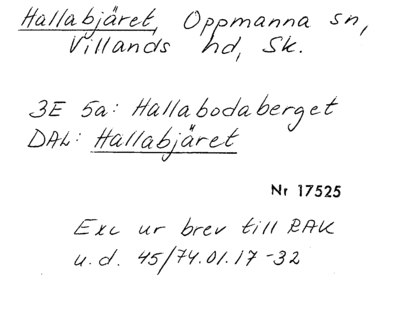 Hallabjäret, Oppmanna sn,
Villands hd, Sk.
3E 5a: Hallabodaberget
DAL: Hallabjäret
Nr 17525
Exc ur brev till RAK
u.d. 45/74.01.17-32